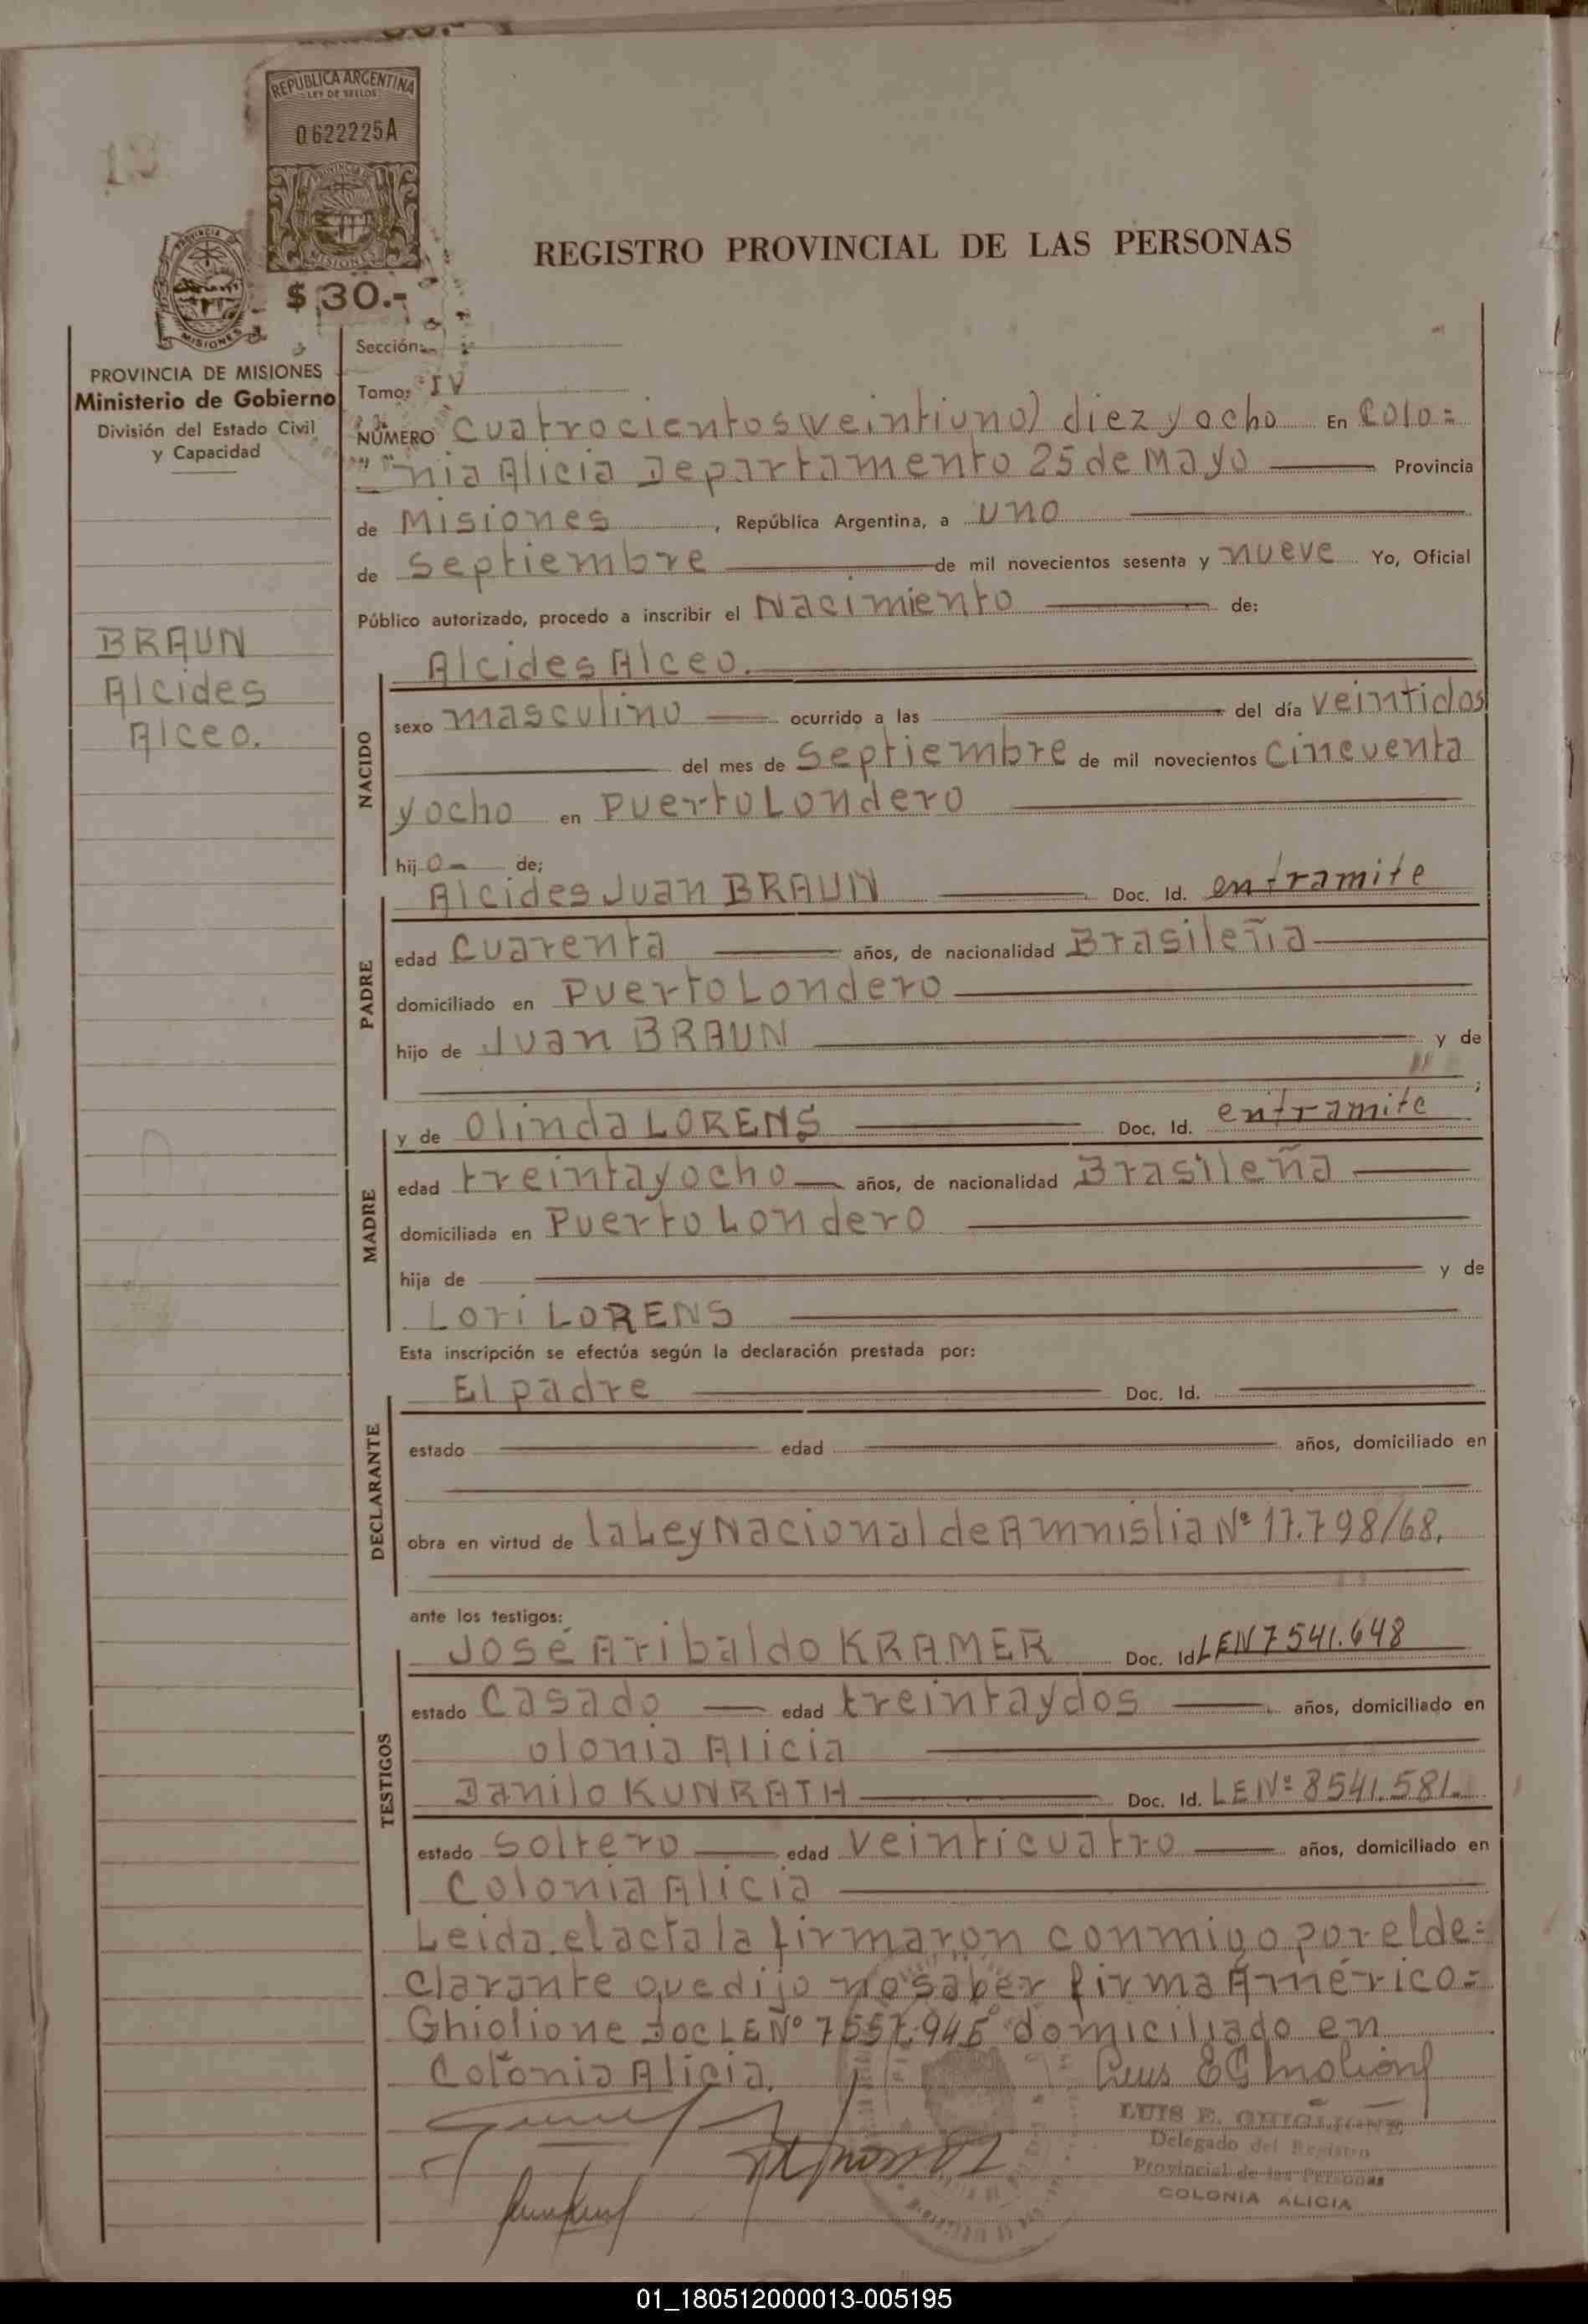 REPUBLICA ARGENTINA
LEY DE SELLOS
0622225A
PROVINCIA
MISIONES
$ 30.-
PROVINCIA DE
MISIONES
REGISTRO PROVINCIAL DE LAS PERSONAS
PROVINCIA DE MISIONES
Ministerio de Gobierno
División del Estado Civil
y Capacidad
BRAUN
Alcides
Alceo.
Sección:
Tomo: IV
NÚMERO Cuatrocientos veintiuno) diez y ocho En Colo=
nia Alicia Departamento 25 de Mayo Provincia
de Misiones, República Argentina, a uno
de Septiembre de mil novecientos sesenta y nueve Yo, Oficial
Público autorizado, procedo a inscribir el Nacimiento de:
NACIDO
Alcides Alceo.
sexo masculino ocurrido a las del día veintidos
del mes de Septiembre de mil novecientos Cincuenta
y ocho en Puerto Londero
hij o de;
PADRE
Alcides Juan BRAUN Doc. Id. en tramite
edad Cuarenta años, de nacionalidad Brasileña
domiciliado en Puerto Londero
hijo de Juan BRAUN y de
;
MADRE
y de Olinda LORENS Doc. Id. en tramite
edad treinta y ocho años, de nacionalidad Brasileña
domiciliada en Puerto Londero
hija de y de
Lori LORENS
Esta inscripción se efectúa según la declaración prestada por:
DECLARANTE
El padre Doc. Id.
estado edad años, domiciliado en
obra en virtud de la Ley Nacional de Amnistia Nº 17.798/68.
ante los testigos:
TESTIGOS
José Aribaldo KRAMER Doc. Id LEN 7541.648
estado Casado edad treinta y dos años, domiciliado en
olonia Alicia
Danilo KUNRATH Doc. Id. LE Nº 8541.581.
estado Soltero edad veinticuatro años, domiciliado en
Colonia Alicia
Leida el acta la firmaron conmigo por el de=
clarante que dijo no saber firma Américo=
Ghiolione Doc LE Nº 7557.945 domiciliado en
Colonia Alicia.
LUIS E. GHIOLIONE
Delegado del Registro
Provincial de las Personas
COLONIA ALICIA
01_180512000013-005195